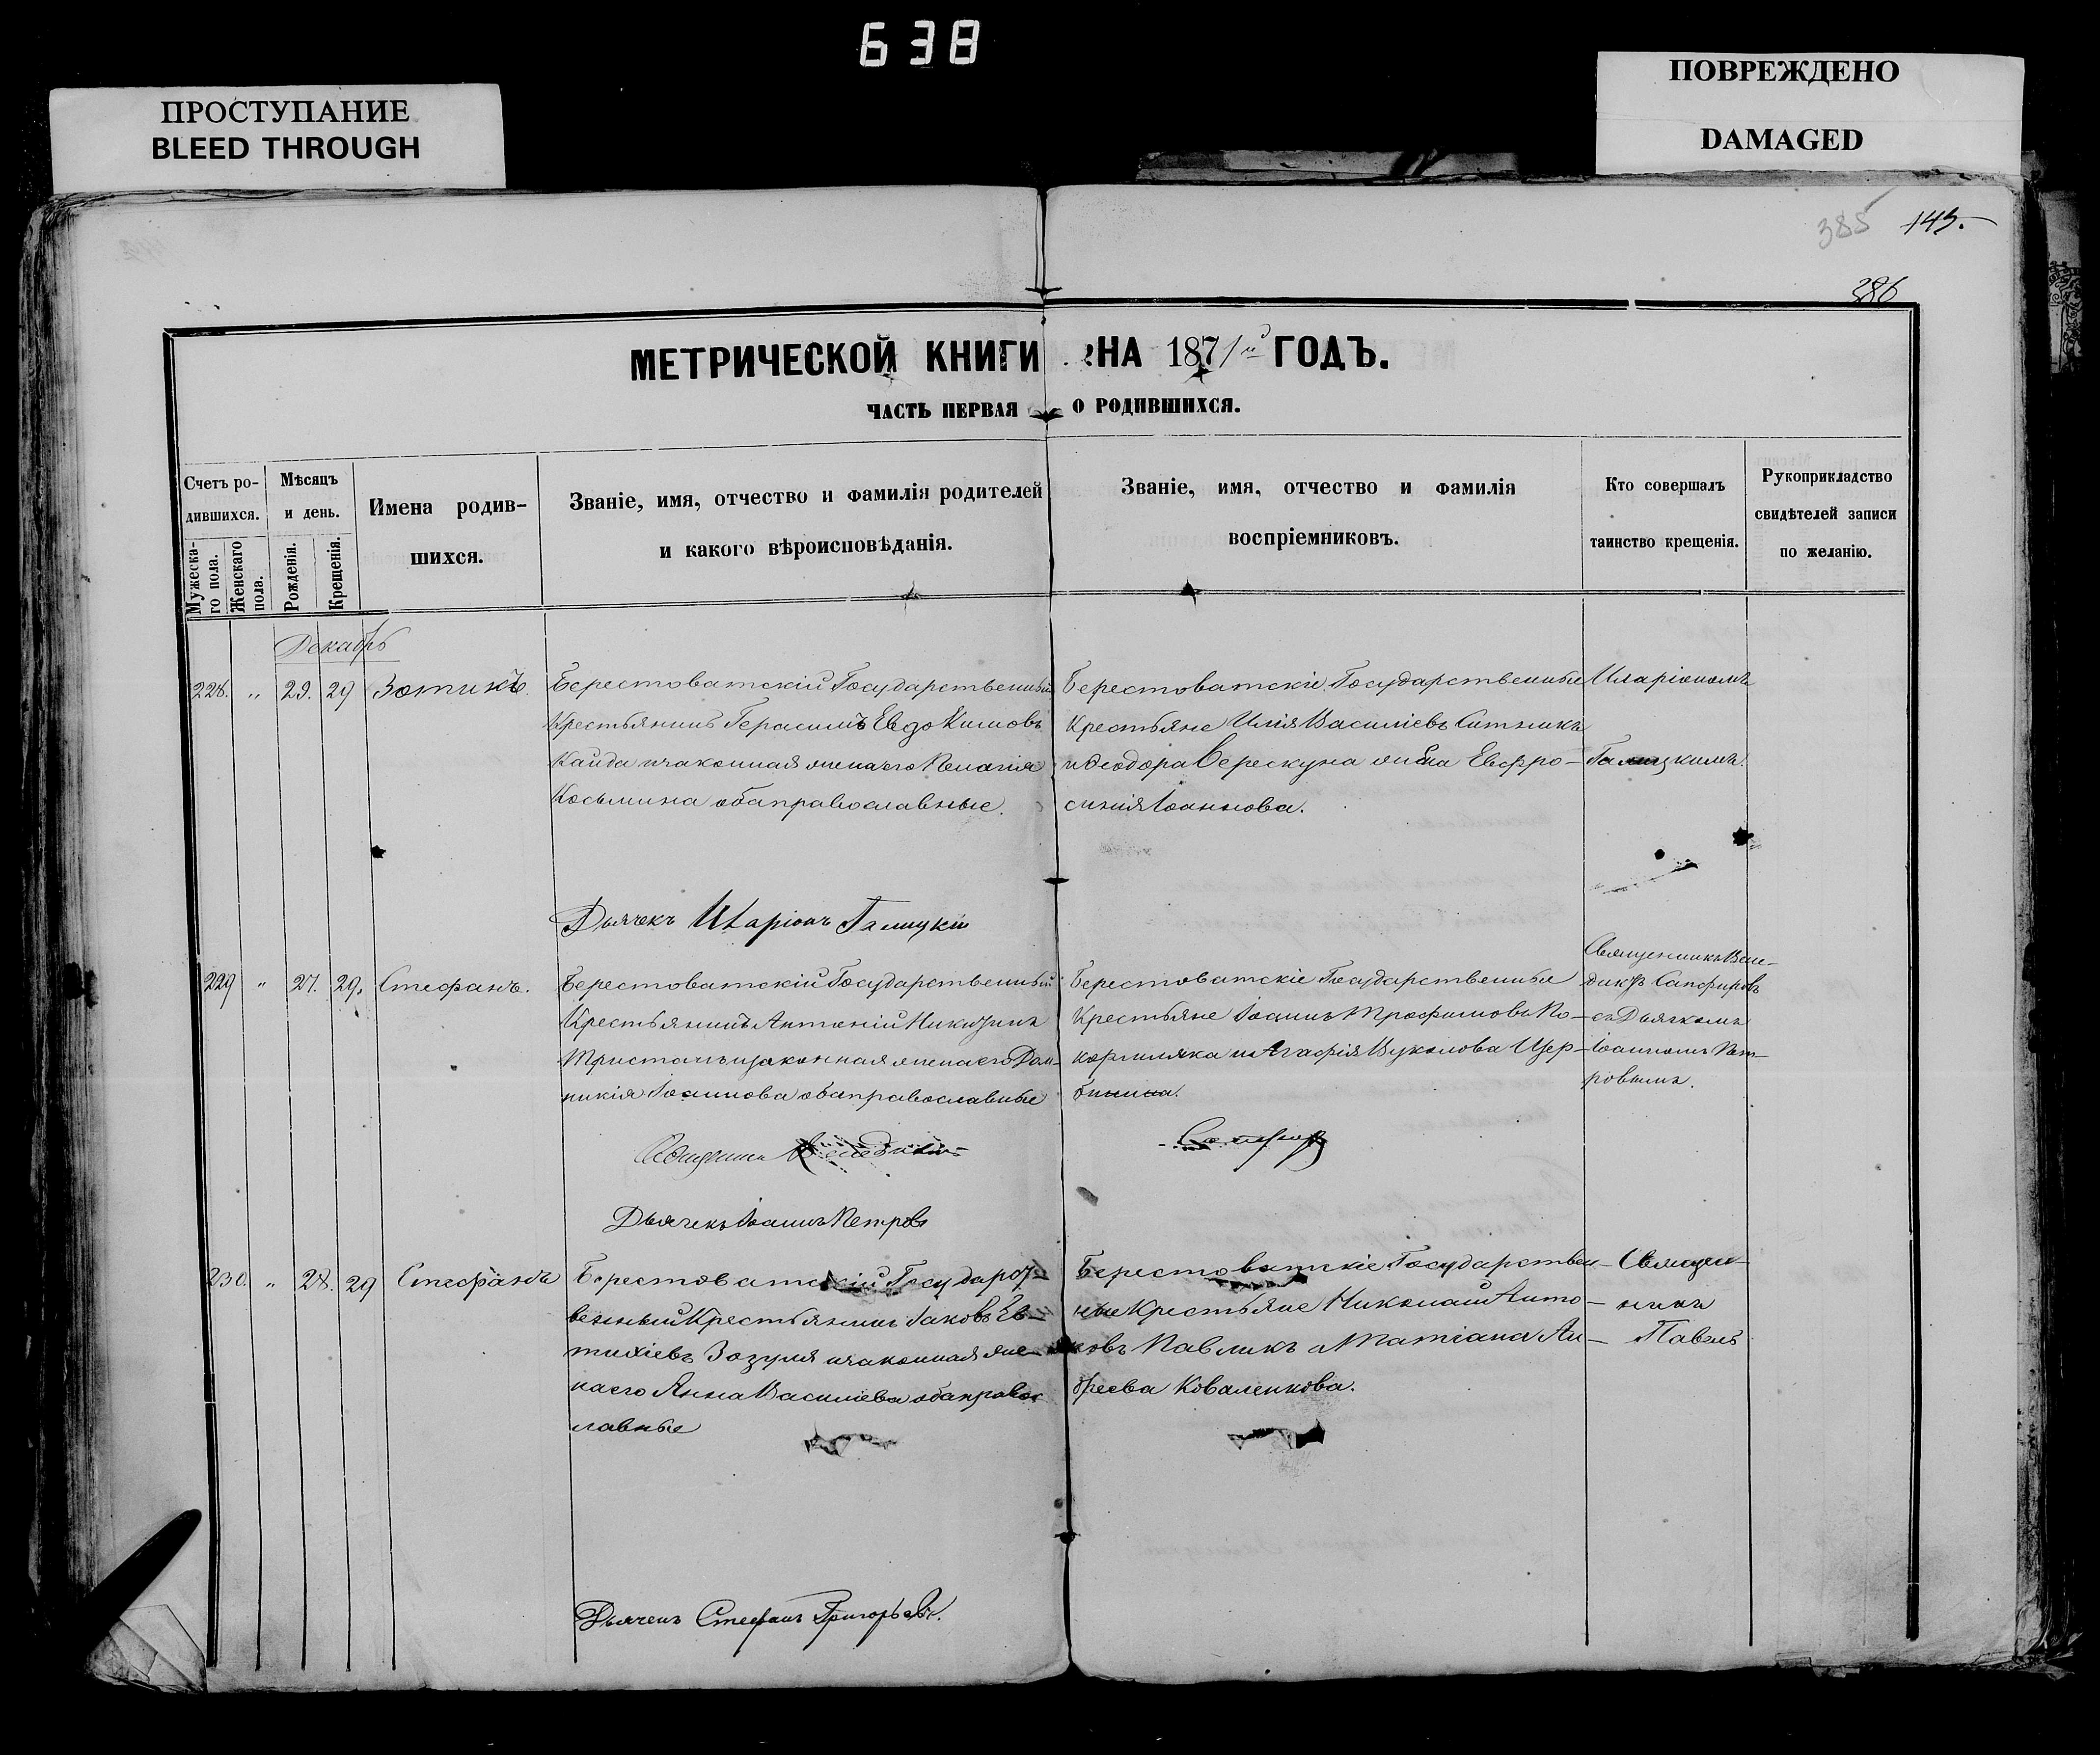 638
ПРОСТУПАНИЕ
BLEED THROUGH
ПОВРЕЖДЕНО
DAMAGED
385 143.
386
МЕТРИЧЕСКОЙ КНИГИ НА 1871й ГОДЪ.
ЧАСТЬ ПЕРВАЯ О РОДИВШИХСЯ.
Счетъ ро-
дившихся.
Мужеска-
го пола.
Женскаго
пола.
Мѣсяцъ
и день.
Рожденія.
Крещенія.
Имена родив-
шихся.
Званіе, имя, отчество и фамилія родителей
и какого вѣроисповѣданія.
Званіе, имя, отчество и фамилія
воспріемниковъ.
Кто совершалъ
таинство крещенія.
Рукоприкладство
свидѣтелей записи
по желанію.
Декабрь
228. " 29. 29 Зотикъ.
Берестоватскій Государственный
Крестьянинъ Герасимъ Евдокимовъ
Кайда изаконная жена его Пелагія
Косьмина оба православные.
Берестоватскіе Государственные
Крестьяне Илія Василіевъ Ситникъ
и Феодора Верескуна жена Евфро-
синія Іоаннова.
Иларіономъ
Галицкимъ.
Дьячекъ Иларіонъ Галицкій
229 " 27. 29. Стефанъ.
Берестоватскій Государственный
Крестьянинъ Антоній Никитинъ
Тристанъ изаконная жена его Дом-
никія Іоаннова оба православные
Берестоватскіе Государственные
Крестьяне Іоаннъ Трофимовъ По-
кормляка и Агафія Вуколова Щер-
бинина.
Священникъ Вене-
диктъ Сапфировъ
съ Дьячкомъ
Іоанномъ Пет-
ровымъ.
Священникъ Венедиктъ
Сапфировъ
Дьячекъ Іоаннъ Петровъ
230. " 28. 29 Стефанъ
Берестоватскій Государст-
венный Крестьянинъ Іаковъ Ев-
тихіевъ Зозуля изаконная же-
на его Анна Василіева оба правос
лавные
Берестоватскіе Государствен-
ные Крестьяне Николай Анто-
новъ Павликъ и Татіана Ан-
дреева Коваленкова.
Священ-
никъ
Павелъ
Дьячекъ Стефанъ Григорьевъ.